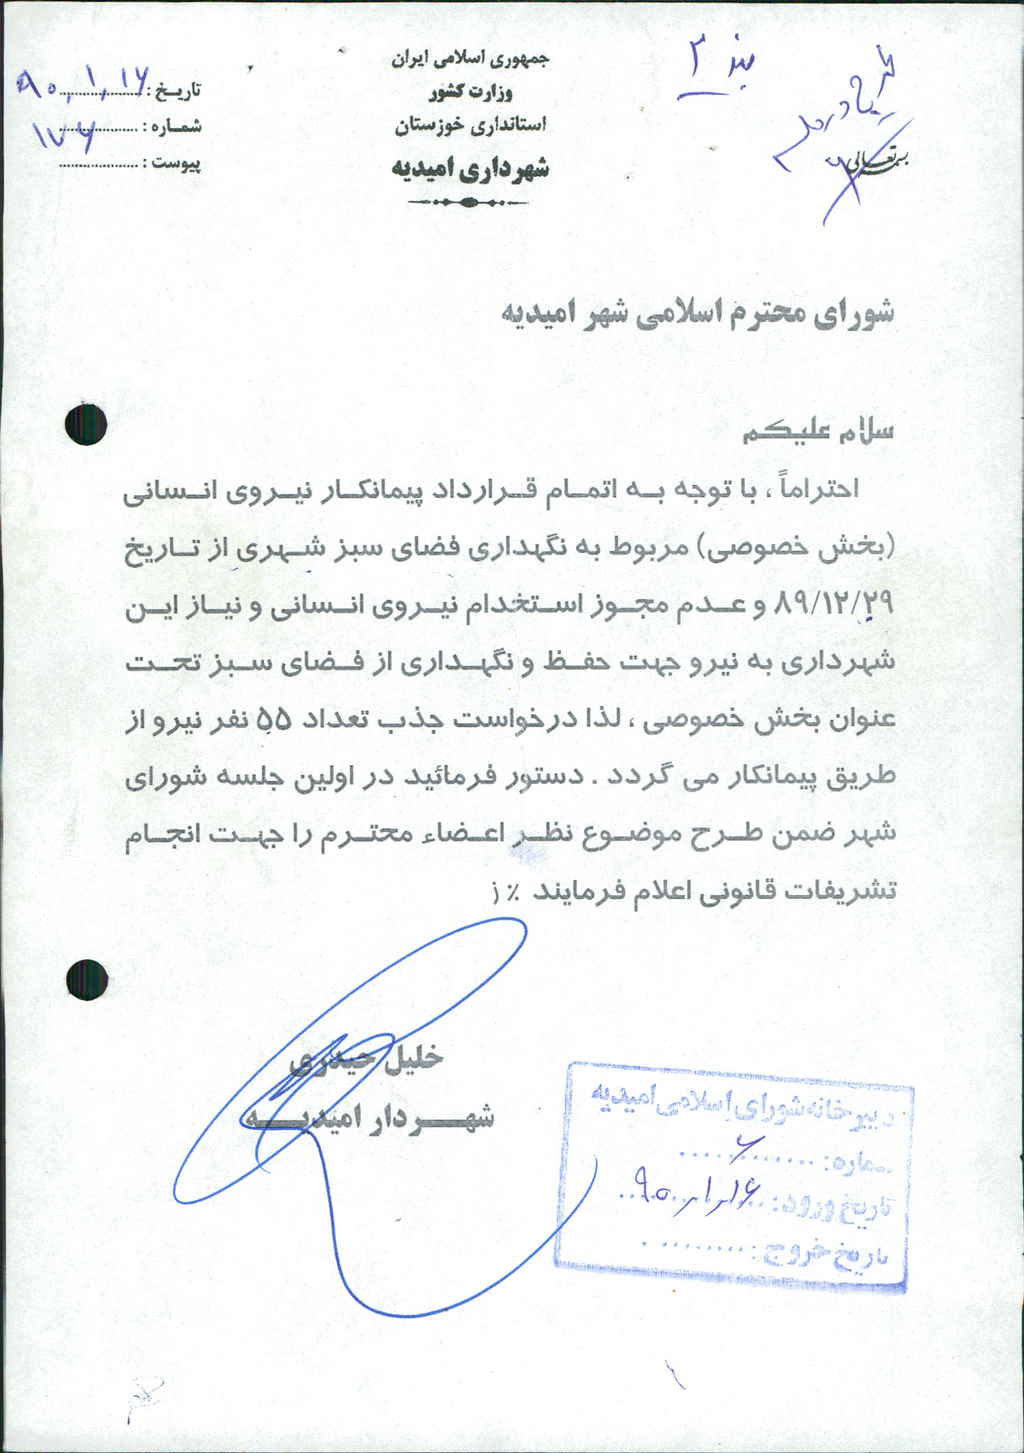 بسمه تعالی
بند ۳
طرح در جلسه
جمهوری اسلامی ایران
وزارت کشور
استانداری خوزستان
شهرداری امیدیه
تاریخ : ۹۰,۱,۱۶
شماره : ۱۷۶
پیوست :
شورای محترم اسلامی شهر امیدیه
سلام علیکم
احتراماً ، با توجه به اتمام قرارداد پیمانکار نیروی انسانی
(بخش خصوصی) مربوط به نگهداری فضای سبز شهری از تاریخ
۸۹/۱۲/۲۹ و عدم مجوز استخدام نیروی انسانی و نیاز این
شهرداری به نیرو جهت حفظ و نگهداری از فضای سبز تحت
عنوان بخش خصوصی ، لذا درخواست جذب تعداد ۵۵ نفر نیرو از
طریق پیمانکار می گردد . دستور فرمائید در اولین جلسه شورای
شهر ضمن طرح موضوع نظر اعضاء محترم را جهت انجام
تشریفات قانونی اعلام فرمایند ٪ ز
خلیل حیدری
شهردار امیدیه
دبیرخانه شورای اسلامی امیدیه
شماره: ۶
تاریخ ورود: ۹۰/۱/۱۶
تاریخ خروج :